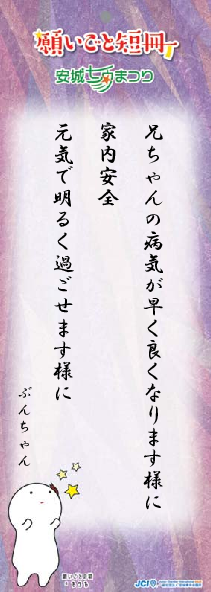 願いごと短冊
安城七夕まつり
兄ちゃんの病気が早く良くなります様に
家内安全
元気で明るく過ごせます様に
ぶんちゃん
願いごと短冊
JCI